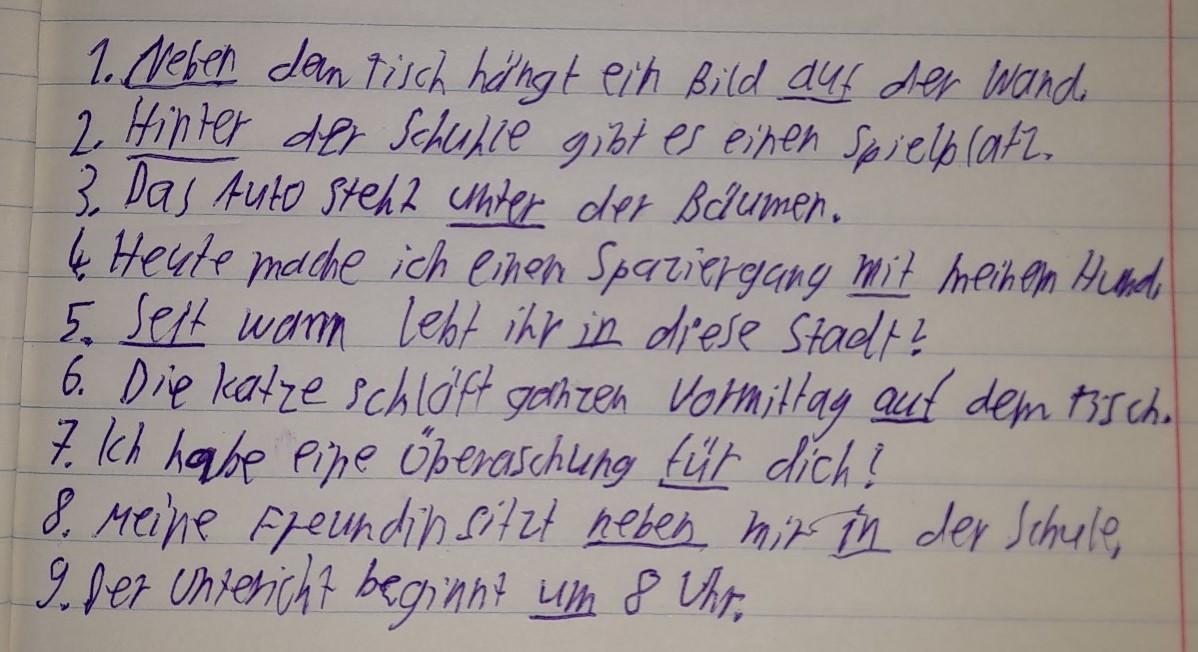 1. Neben den Tisch hängt ein Bild auf der Wand.
2. Hinter der Schuhle gibt es einen Spielplatz.
3. Das Auto steht unter der Bäumen.
4. Heute mache ich einen Spaziergang mit meinem Hund.
5. Seit wann lebt ihr in diese Stadt?
6. Die Katze schläft ganzen Vormittag auf dem Tisch.
7. Ich habe eine Überaschung für dich!
8. Meine Freundin sitzt neben mir in der Schule.
9. Der Untericht beginnt um 8 Uhr.